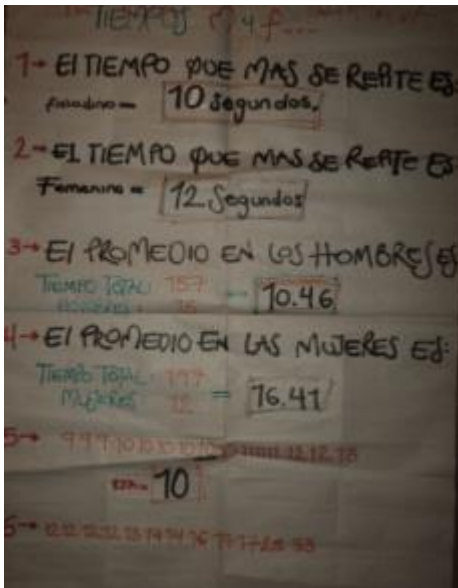 TIEMPOS M y F...
1→ El TIEMPO QUE MAS SE REPITE ES:
= 10 segundos.
2→ El TIEMPO QUE MAS SE REPITE ES
Femenino = 12 Segundos
3→ El PROMEDIO EN LOS HOMBRES ES
TIEMPO TOTAL: 157
= 10.46
4→ El PROMEDIO EN LAS MUJERES ES:
TIEMPO TOTAL: 197
MUJERES 12 = 16.41
5→ 9 9 9 10 10 10 10
10
5→ 12 12 12 12 13 14 14 16